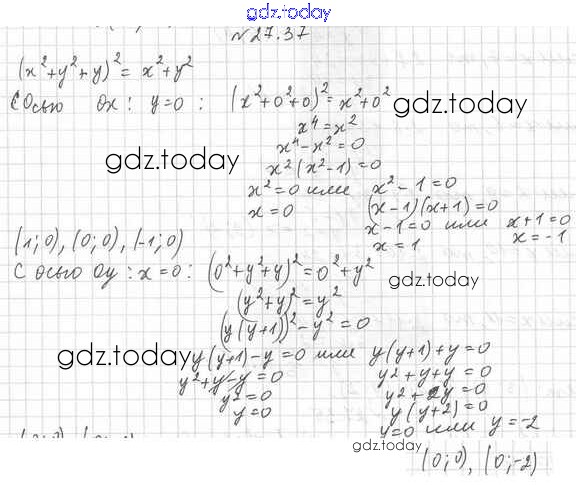 gdz.today
№27.37
(x²+y²+y)²= x²+y²
С Осью Ox: y=0: (x²+0²+0)²=x²+0²
gdz.today
x⁴=x²
x⁴-x²=0
gdz.today
x²(x²-1)=0
x²=0 или x²-1=0
x=0 (x-1)(x+1)=0
x-1=0 или x+1=0
x=1 x=-1
(1;0), (0;0), (-1;0)
С осью Oy: x=0: (0²+y²+y)²=0²+y²
gdz.today
(y²+y)²=y²
(y(y+1))²-y²=0
gdz.today
y(y+1)-y=0 или y(y+1)+y=0
y²+y-y=0 y²+y+y=0
y²=0 y²+2y=0
y=0 y(y+2)=0
y=0 или y=-2
gdz.today
(0;0), (0;-2)